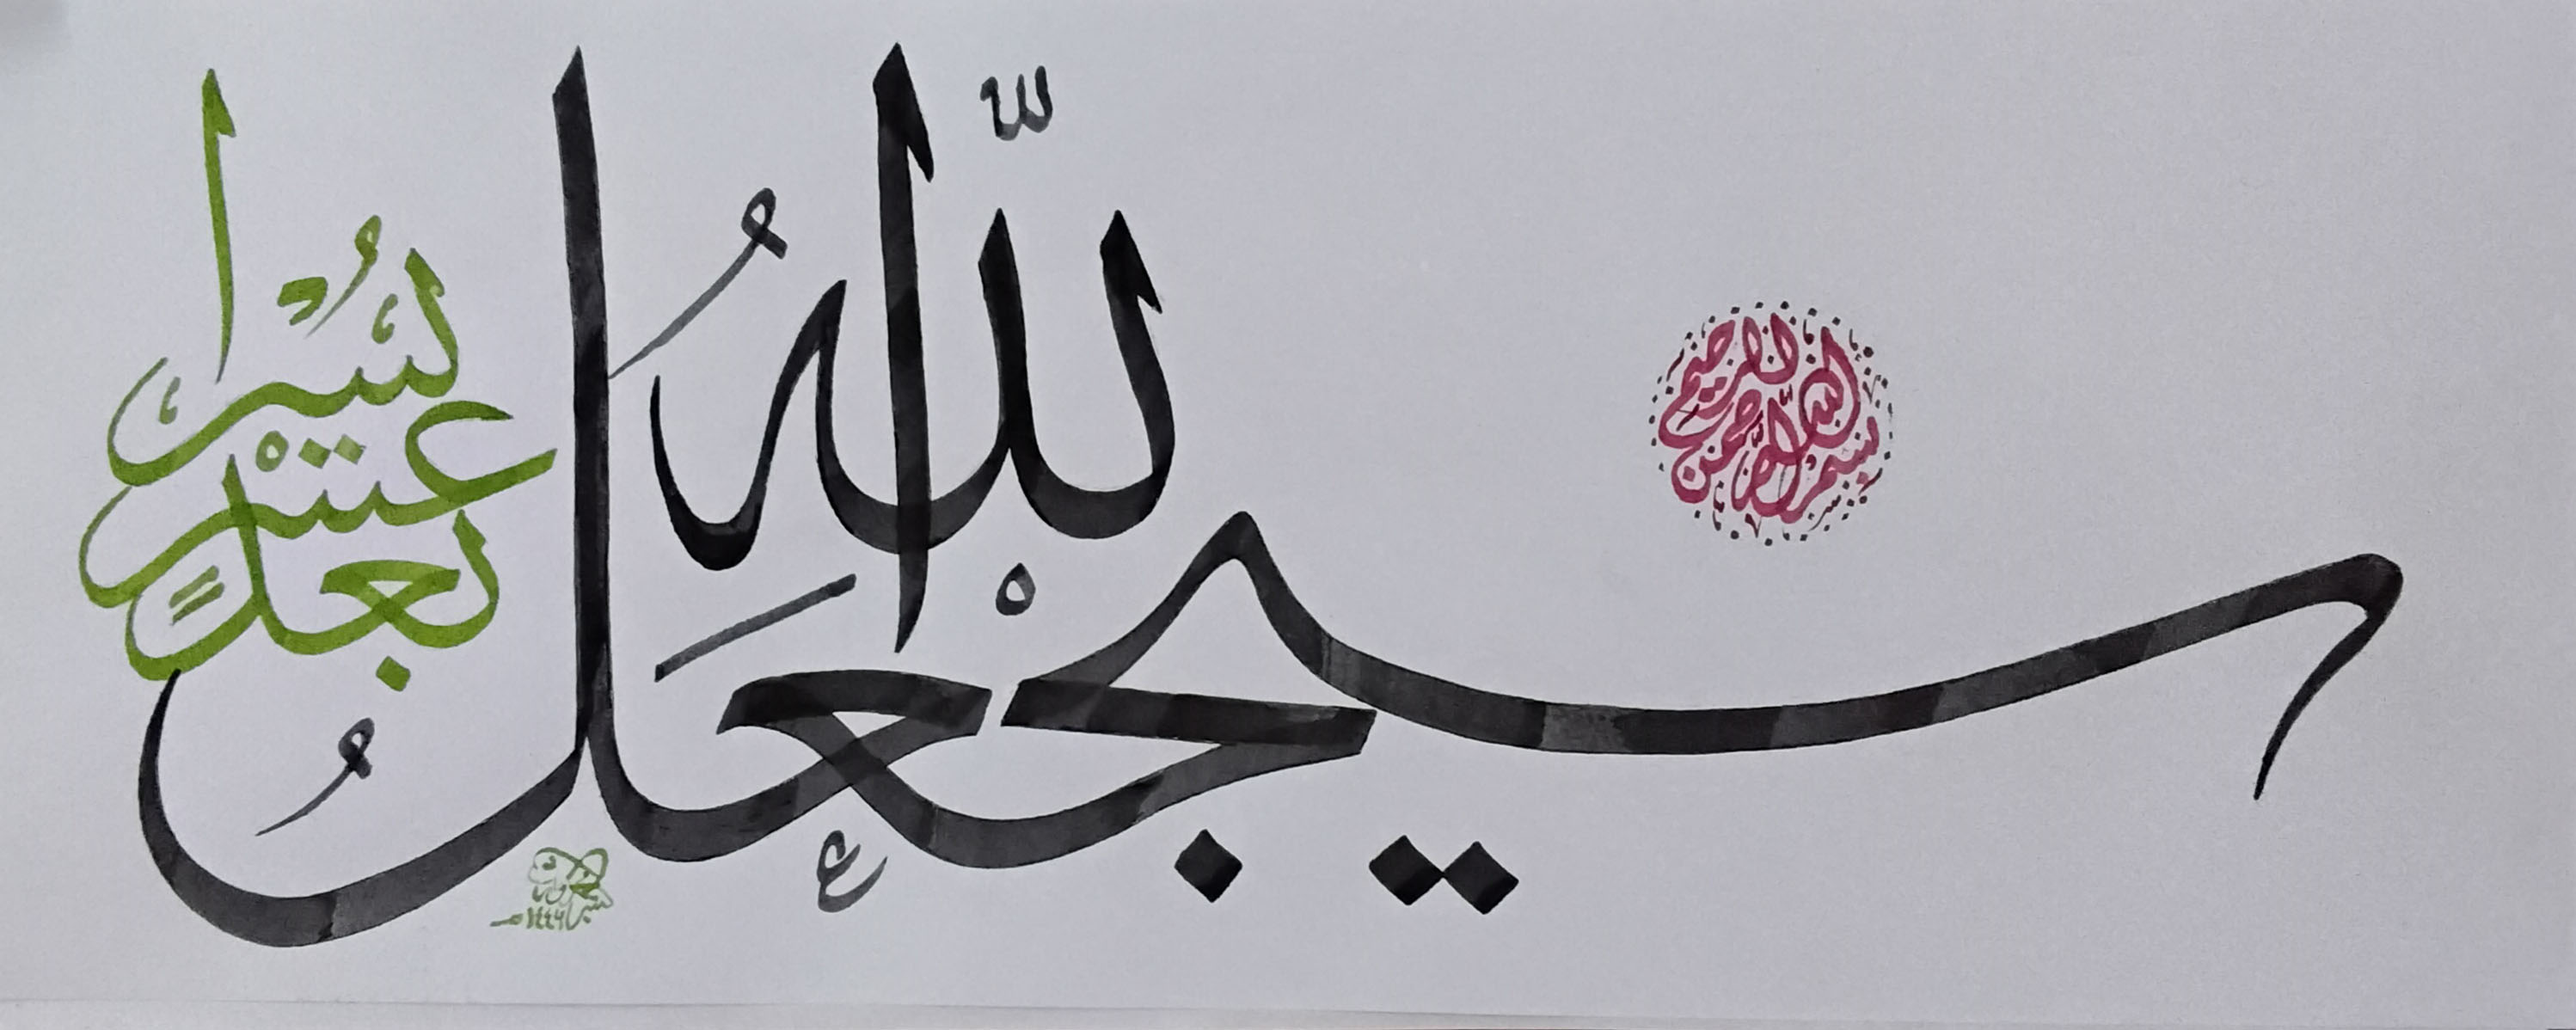 بسم الله الرحمن الرحيم
سيجعل الله
بعد عسر
يسرا
١٤٤٦هـ